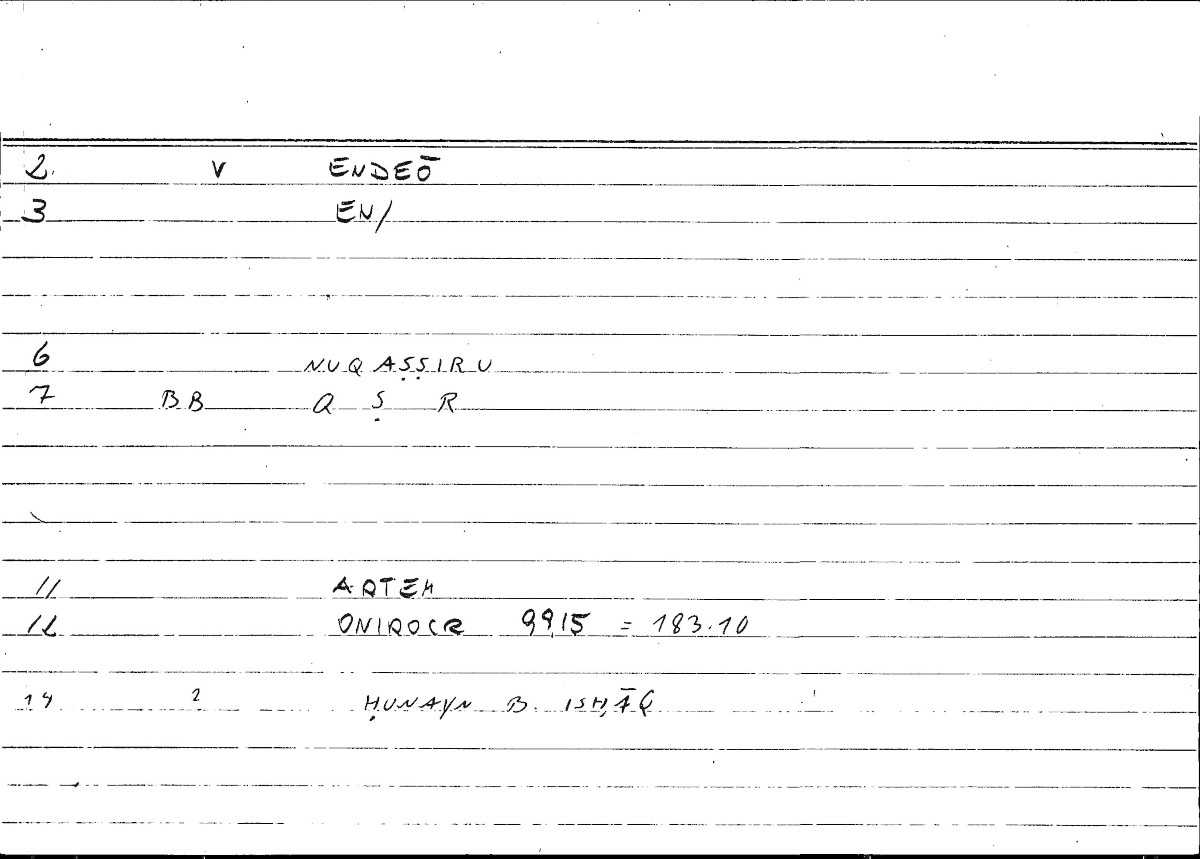 2. V ENDEŌ
3 EN/
6 NUQAṢṢIRU
7 BB Q Ṣ R
11 ARTEM
12 ONIROCR 99,15 = 183.10
14 2 ḤUNAYN B. ISḤĀQ